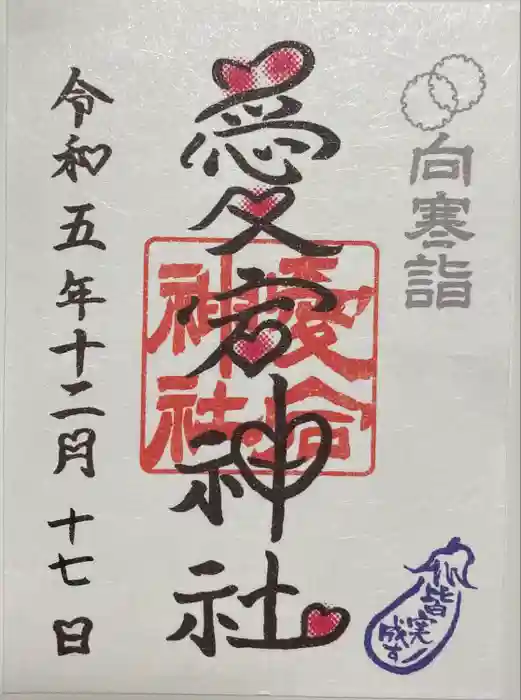 向寒詣
愛宕神社
愛宕
神社
令和五年十二月十七日
皆実
成す